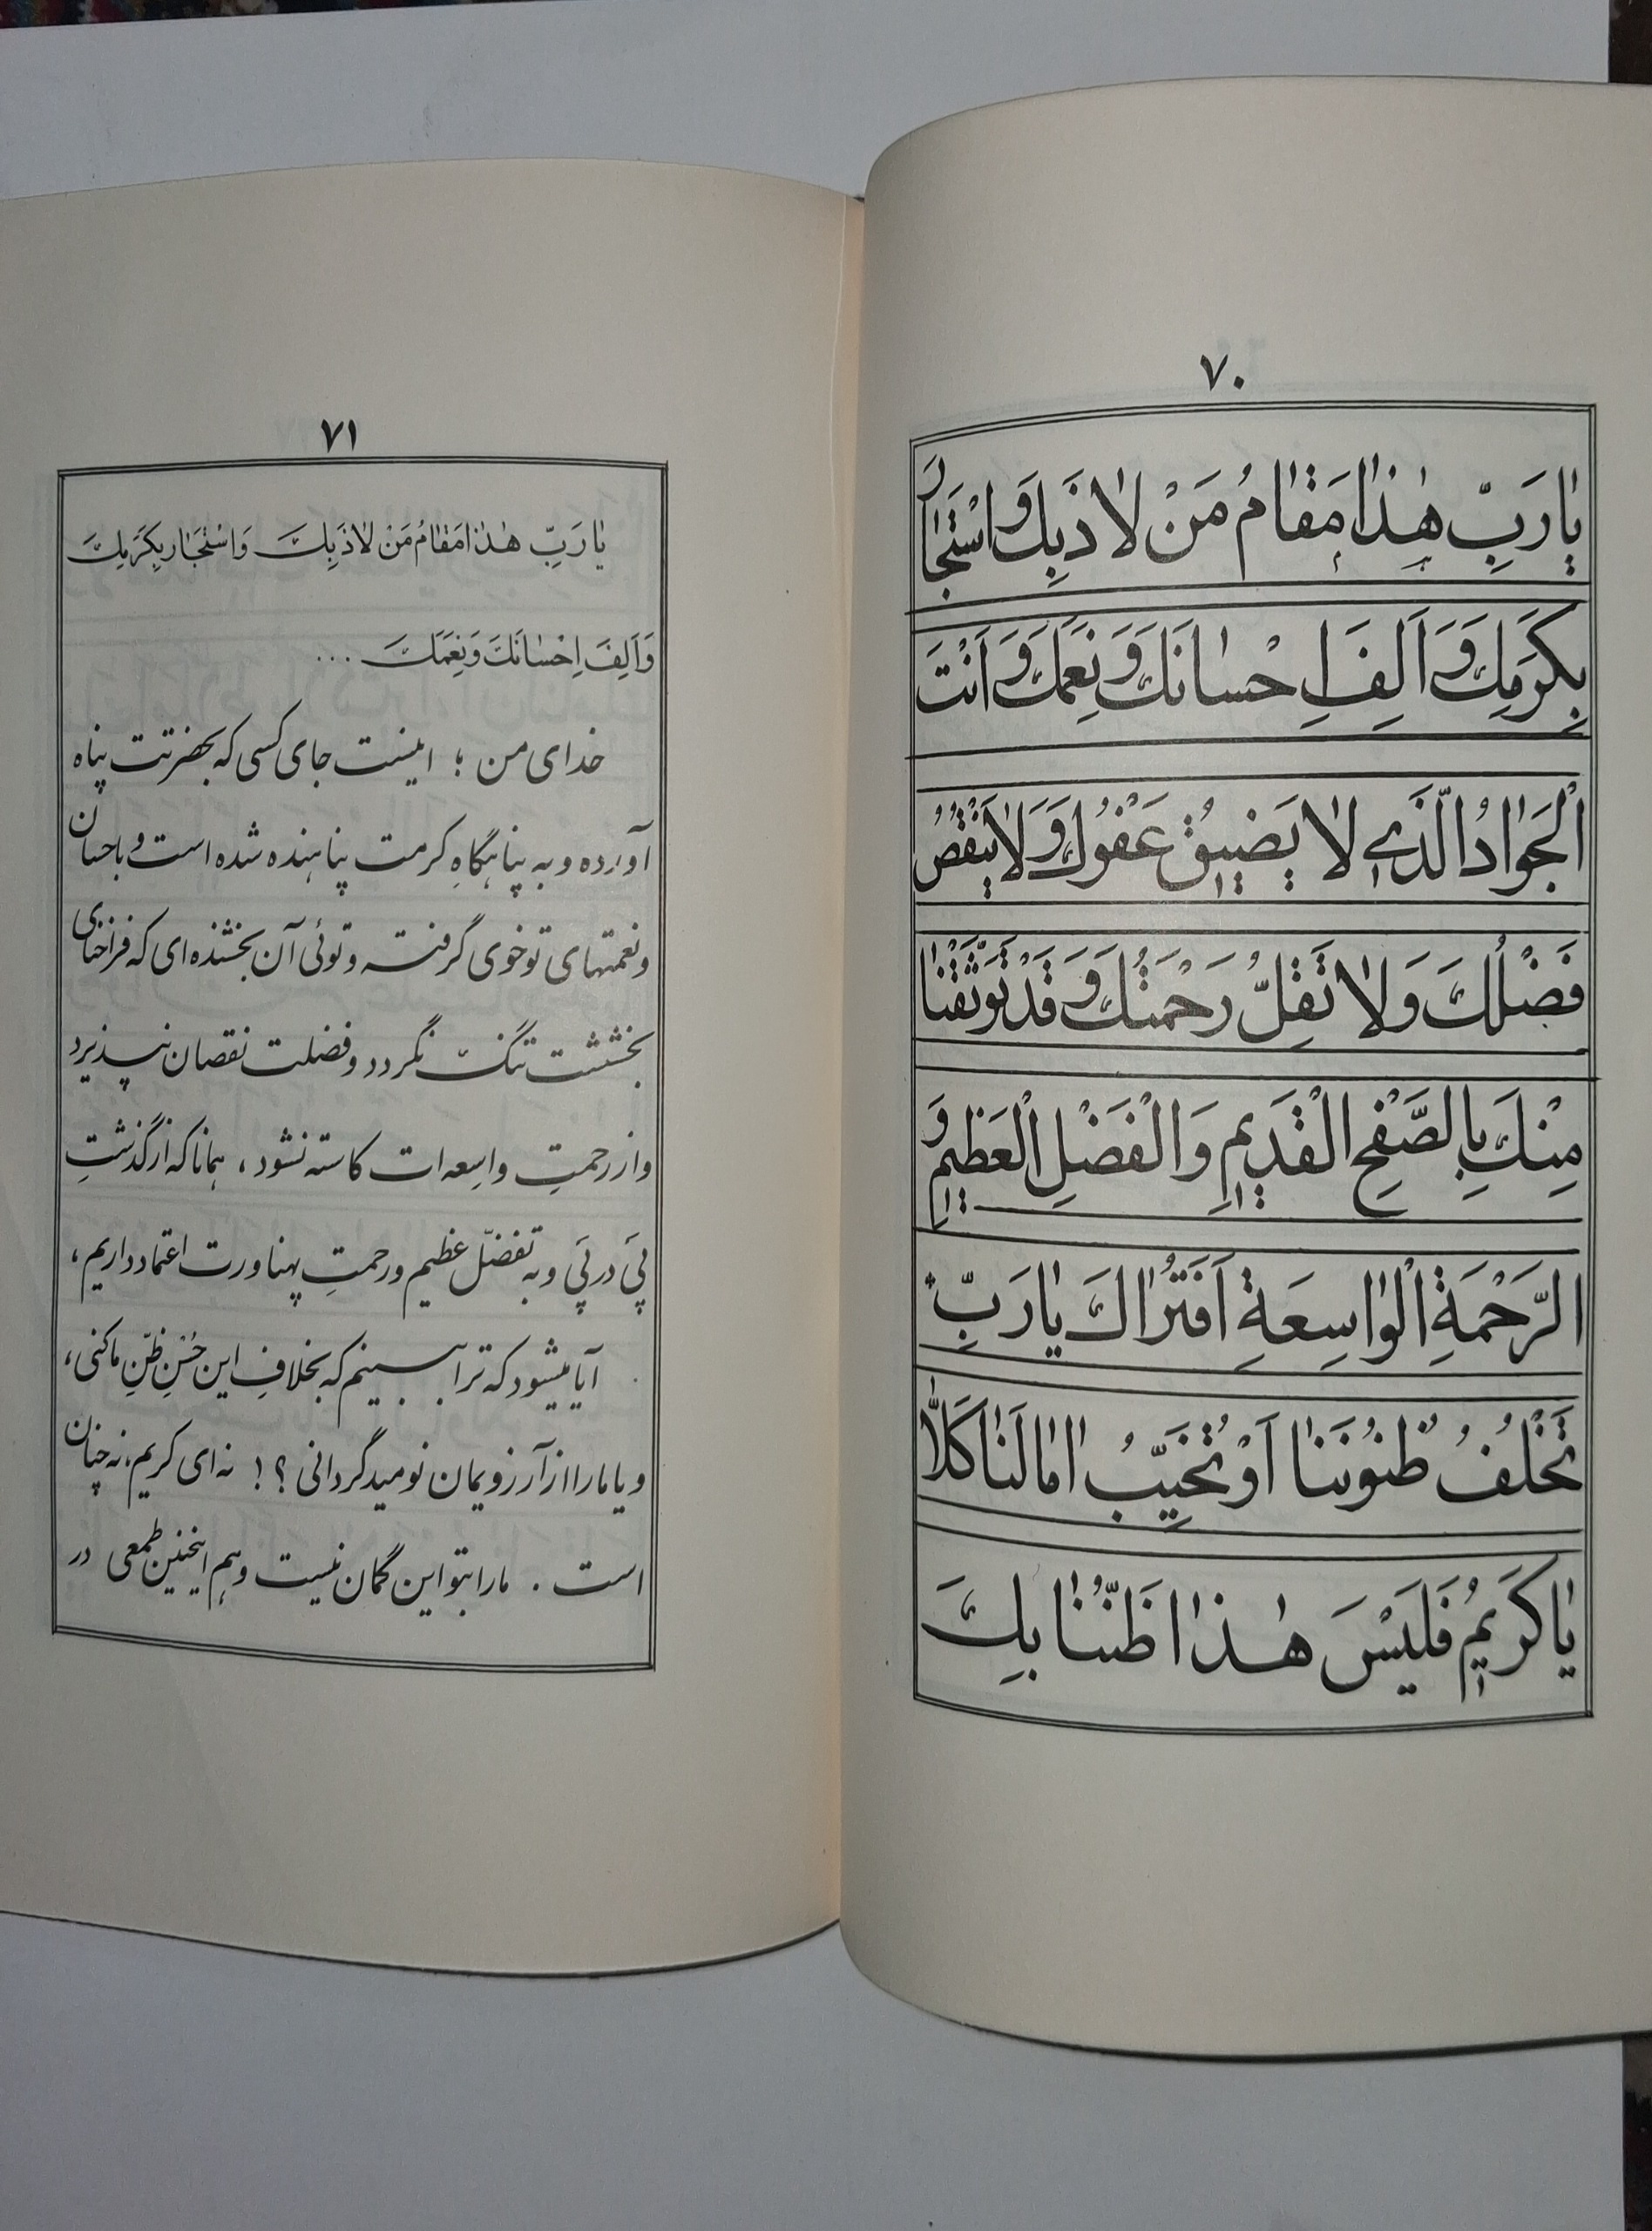 ۷۰
یٰا رَبِّ هٰذٰا مَقٰامُ مَنْ لٰاذَ بِكَ وَاسْتَجٰارَ
بِكَرَمِكَ وَ اَلِفَ اِحْسٰانَكَ وَ نِعَمَكَ وَ اَنْتَ
الْجَوٰادُ الَّذی لٰا یَضیٖقُ عَفْوُكَ وَ لٰا یَنْقُصُ
فَضْلُكَ وَ لٰا تَقِلُّ رَحْمَتُكَ وَ قَدْ تَوَثَّقْنٰا
مِنْكَ بِالصَّفْحِ الْقَدیٖمِ وَالْفَضْلِ الْعَظیٖمِ وَ
الرَّحْمَةِ الْوٰاسِعَةِ اَفَتُرٰاكَ یٰا رَبِّ
تُخْلِفُ ظُنُونَنٰا اَوْ تُخَیِّبُ اٰمٰالَنٰا كَلّٰا
یٰا كَریٖمُ فَلَیْسَ هٰذٰا ظَنُّنٰا بِكَ
۷۱
یٰا رَبِّ هٰذٰا مَقٰامُ مَنْ لٰاذَ بِكَ وَاسْتَجٰارَ بِكَرَمِكَ
وَ اَلِفَ اِحْسٰانَكَ وَ نِعَمَكَ ...
خدای من ؛ اینست جای کسی که بحضرتت پناه
آورده و به پناهگاهِ کرمت پناهنده شده است و باحسان
و نعمتهای تو خوی گرفته و توئی آن بخشنده ای که فراخنای
بخششت تنگ نگردد و فضلت نقصان نپذیرد
و از رحمتِ واسِعه ات کاسته نشود ، همانا که از گذشتِ
پَی در پَی و به تفضّل عظیم و رحمتِ پهناورت اعتماد داریم ،
آیا میشود که ترا ببینم که بخلافِ این حُسنِ ظَنِّ ما کنی ،
و یا ما را از آرزویمان نومید گردانی ؟! نه ای کریم ، نه چنان
است . ما را بتو این گمان نیست و هم اینچنین طمعی در